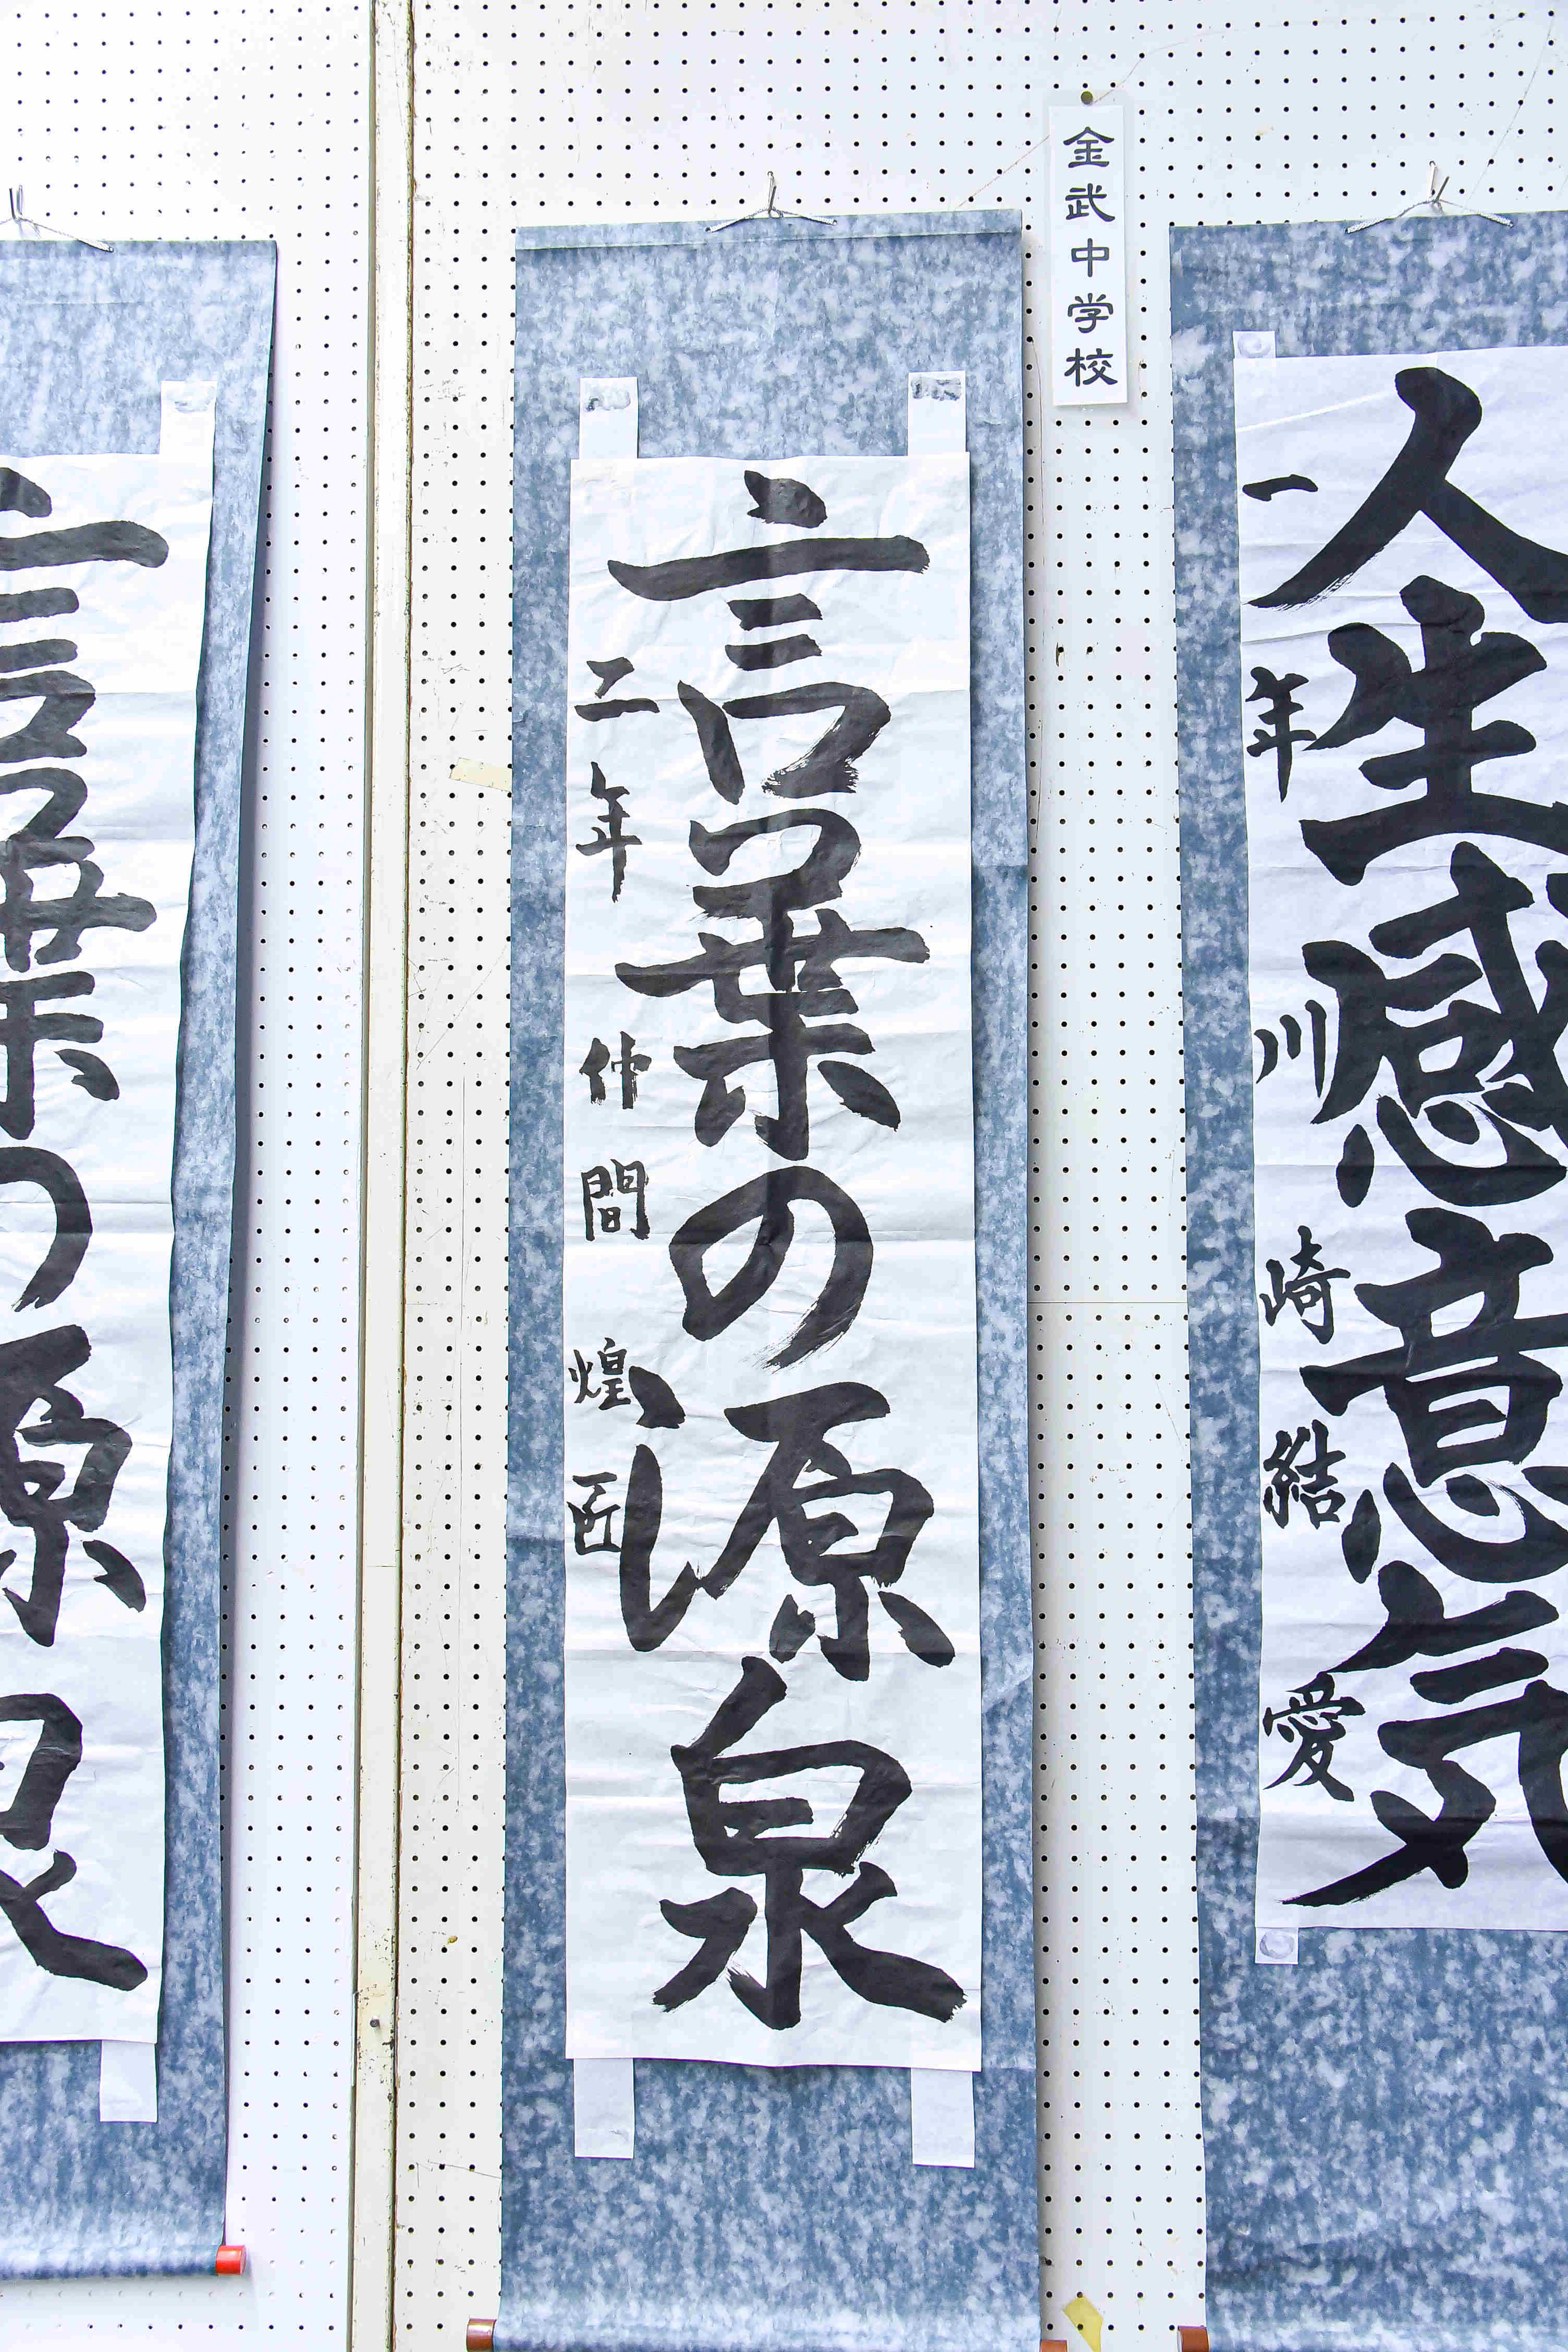 金武中学校
人生感意気
一年 川崎結愛
言葉の源泉
二年 仲間煌匠
言葉の源泉